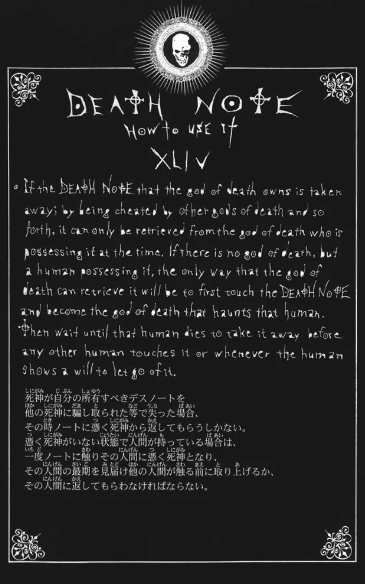 DEATH NOTE
How to USE It
XLIV
○ If the DEATH NOTE that the god of death owns is taken
away; by being cheated by other gods of death and so
forth, it can only be retrieved from the god of death who is
possessing it at the time. If there is no god of death, but
a human possessing it, the only way that the god of
death can retrieve it will be to first touch the DEATH NOTE
and become the god of death that haunts that human.
Then wait until that human dies to take it away before
any other human touches it or whenever the human
shows a will to let go of it.
死神が自分の所有すべきデスノートを
他の死神に騙し取られた等で失った場合、
その時ノートに憑く死神から返してもらうしかない。
憑く死神がいない状態で人間が持っている場合は、
一度ノートに触りその人間に憑く死神となり、
その人間の最期を見届け他の人間が触る前に取り上げるか、
その人間に返してもらわなければならない。